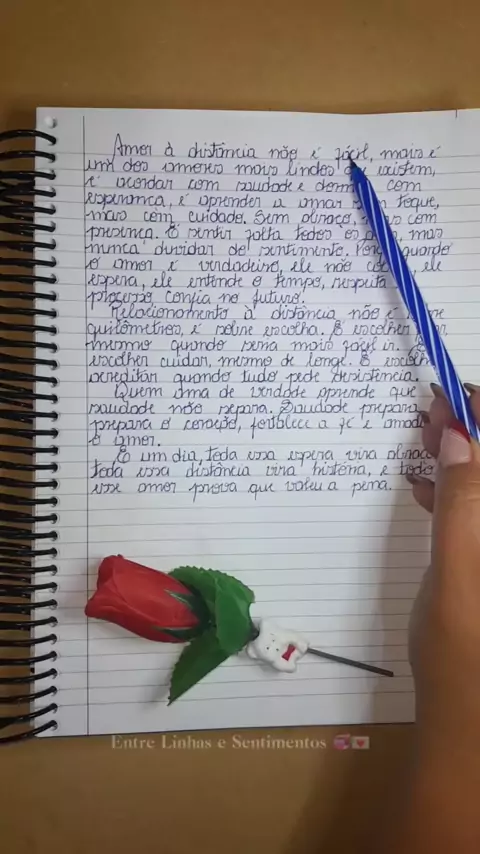 Amor à distância não é fácil, mais é
um dos amores mais lindos existem,
é acordar com saudade e dormir com
esperança, é aprender a amar sem toque,
mas com cuidado. Sem abraço, mas com
presença. É sentir falta todos os dias, mas
nunca duvidar do sentimento. Porque quando
o amor é verdadeiro, ele não ele
espera, ele entende o tempo, respeita
processo, confia no futuro.
Relacionamento à distância não é
quilômetros, é sobre escolha. É escolher
mesmo quando seria mais fácil ir. É
escolher cuidar, mesmo de longe. É escolher
acreditar quando tudo pede desistência.
Quem ama de verdade aprende que
saudade não separa. Saudade prepara,
prepara o coração, fortalece a fé e
o amor.
E um dia, toda essa espera vira abraço
toda essa distância vira história, e todo
esse amor prova que valeu a pena.
Entre Linhas e Sentimentos